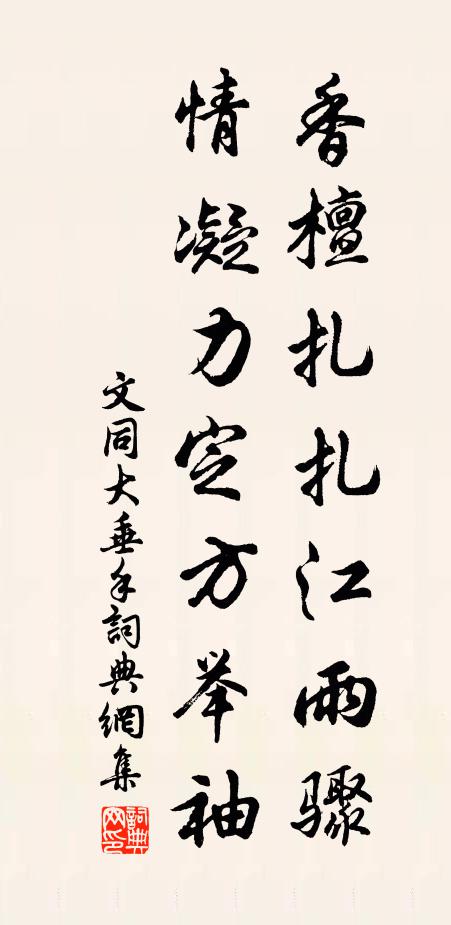 香檀扎扎江雨骤
情凝力定方举袖
文同大垂手詞典網集
詞典網印